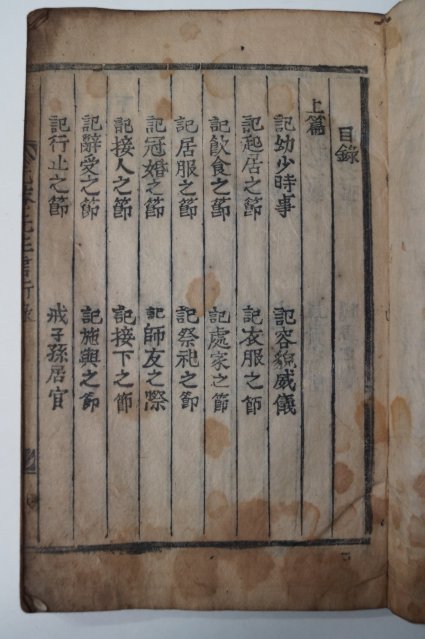 目錄
上篇
記幼少時事 記容貌威儀
記起居之節 記衣服之節
記飮食之節 記處家之節
記居服之節 記祭祀之節
記冠婚之節 記師友之際
記接人之節 記接下之節
記辭受之節 記施與之節
記行止之節 戒子孫居官